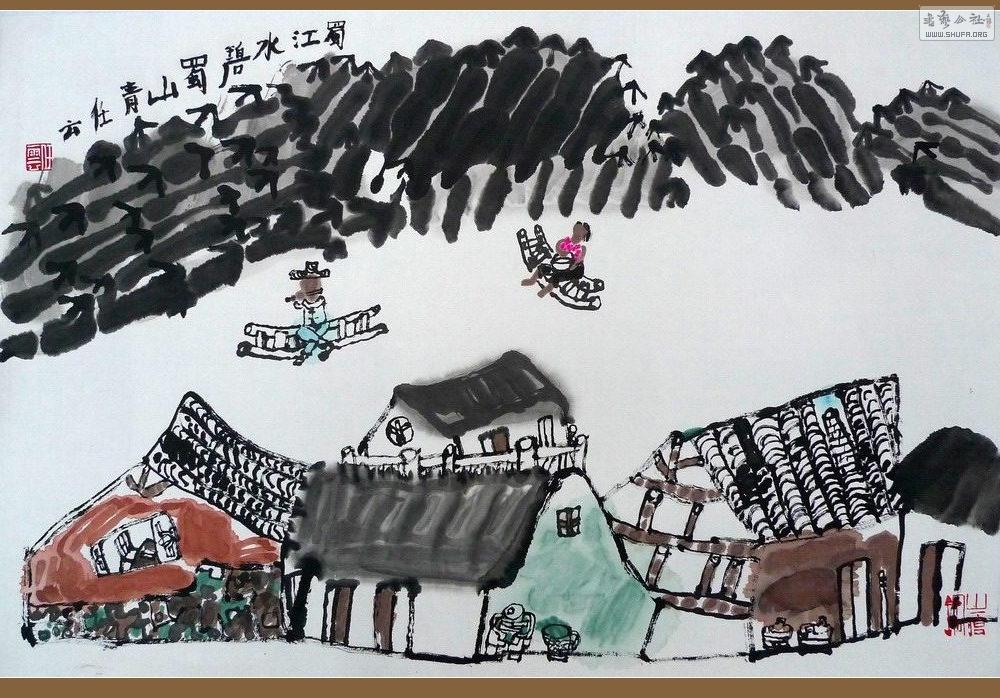 蜀江水碧蜀山青 任云
任雲
书艺公社
WWW.SHUFA.ORG